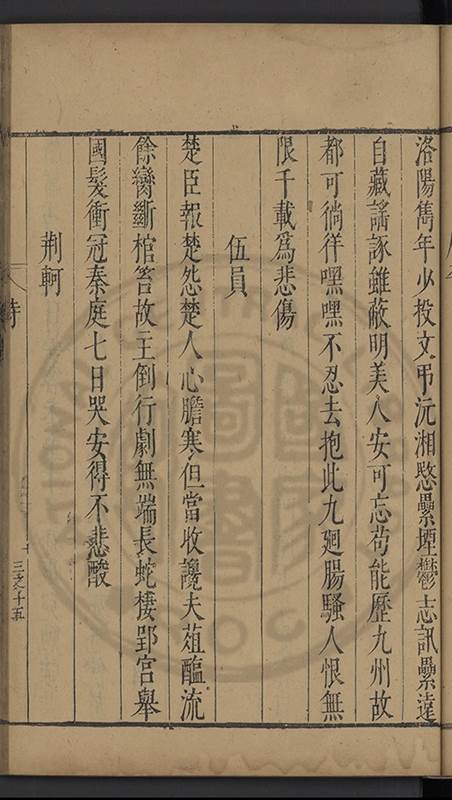 洛陽雋年少投文弔沅湘愍纍堙鬱志訊纍遠
自藏謠諑雖蔽明美人安可忘苟能歷九州故
都可徜徉嘿嘿不忍去抱此九廻腸騷人恨無
限千載爲悲傷
伍員
楚臣報楚怨楚人心膽寒但當收讒夫葅醢流
餘臠斵棺笞故主倒行劇無端長蛇棲郢宮舉
國髮衝冠秦庭七日哭安得不悲酸
荆軻
詩